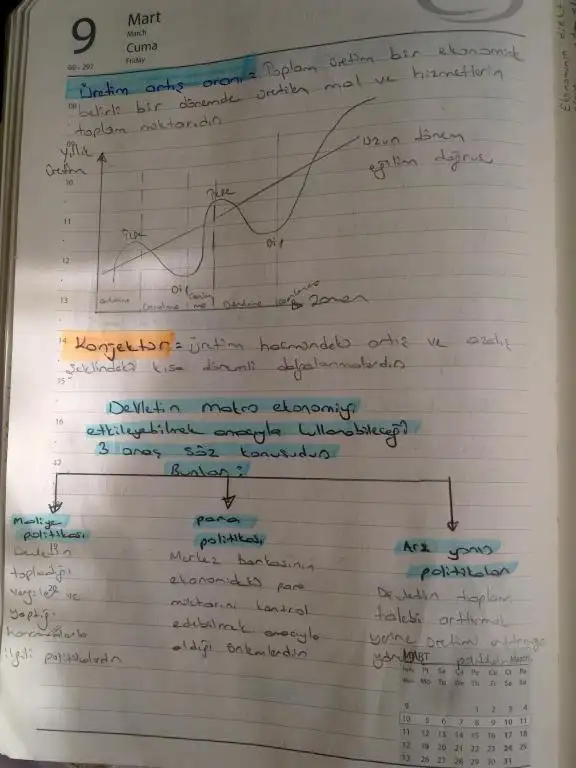 9
Mart
March
Cuma
Friday
68 - 297
Üretim artış oranı = Toplam üretim bir ekonomide
08 belirli bir dönemde üretilen mal ve hizmetlerin
toplam miktarıdır
09
Yıllık
üretim
Uzun dönem
eğilim doğrusu
10
Tepe
11
Tepe
Dip
12
Dip
13
Daralma
Zaman
14 Konjektör = Üretim hacmindeki artış ve azalış
şeklindeki kısa dönemli dalgalanmalardır
15
Devletin makro ekonomiyi
16 etkileyebilmek amacıyla kullanabileceği
3 araç söz konusudur
17
Bunlar:
Maliye
politikası
Devletin
topladığı
vergiler ve
yaptığı
harcamalarla
ilgili politikalardır
para
politikası
Merkez bankasının
ekonomideki para
miktarını kontrol
edebilmek amacıyla
aldığı önlemlerdir
Arz yönlü
politikaları
Devletin toplam
talebi arttırmak
yerine üretimi arttırmaya
MART March
Mo Tu We Th Fr Sa Su
9 1 2 3 4
10 5 6 7 8 9 10 11
11 12 13 14 15 16 17 18
12 19 20 21 22 23 24 25
13 26 27 28 29 30 31